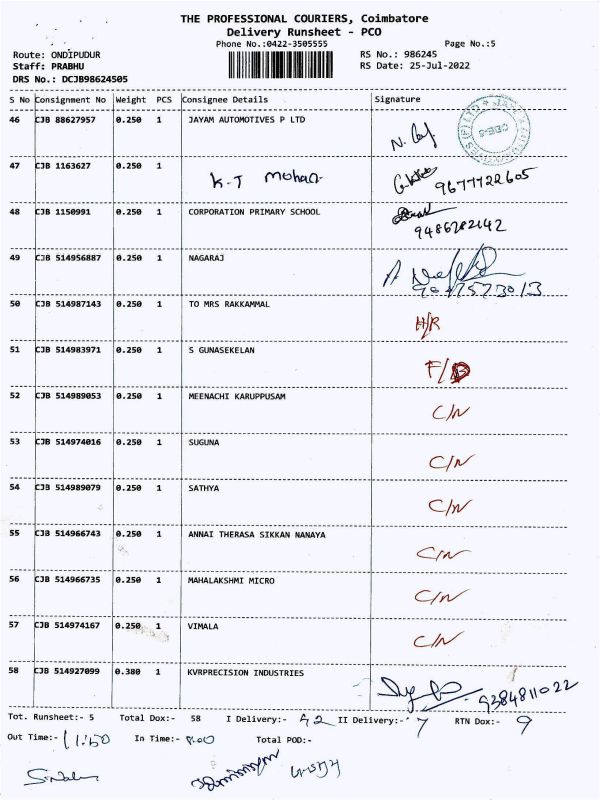 THE PROFESSIONAL COURIERS, Coimbatore
Delivery Runsheet - PCO
Phone No.:0422-3505555 Page No.:5
Route: ONDIPUDUR RS No.: 986245
Staff: PRABHU RS Date: 25-Jul-2022
DRS No.: DCJB98624505
S No Consignment No Weight PCS Consignee Details Signature
46 CJB 88627957 0.250 1 JAYAM AUTOMOTIVES P LTD
47 CJB 1163627 0.250 1 K.T Mohan 9677722605
48 CJB 1150991 0.250 1 CORPORATION PRIMARY SCHOOL
9486282142
49 CJB 514956887 0.250 1 NAGARAJ
50 CJB 514987143 0.250 1 TO MRS RAKKAMMAL H/R
51 CJB 514983971 0.250 1 S GUNASEKELAN
52 CJB 514989053 0.250 1 MEENACHI KARUPPUSAM C/N
53 CJB 514974016 0.250 1 SUGUNA C/N
54 CJB 514989079 0.250 1 SATHYA C/N
55 CJB 514966743 0.250 1 ANNAI THERASA SIKKAN NANAYA C/N
56 CJB 514966735 0.250 1 MAHALAKSHMI MICRO C/N
57 CJB 514974167 0.250 1 VIMALA C/N
58 CJB 514927099 0.380 1 KVRPRECISION INDUSTRIES 9384811022
Tot. Runsheet:- 5 Total Dox:- 58 I Delivery:- 42 II Delivery:- 7 RTN Dox:- 9
Out Time:- 11:50 In Time:- 8.00 Total POD:-